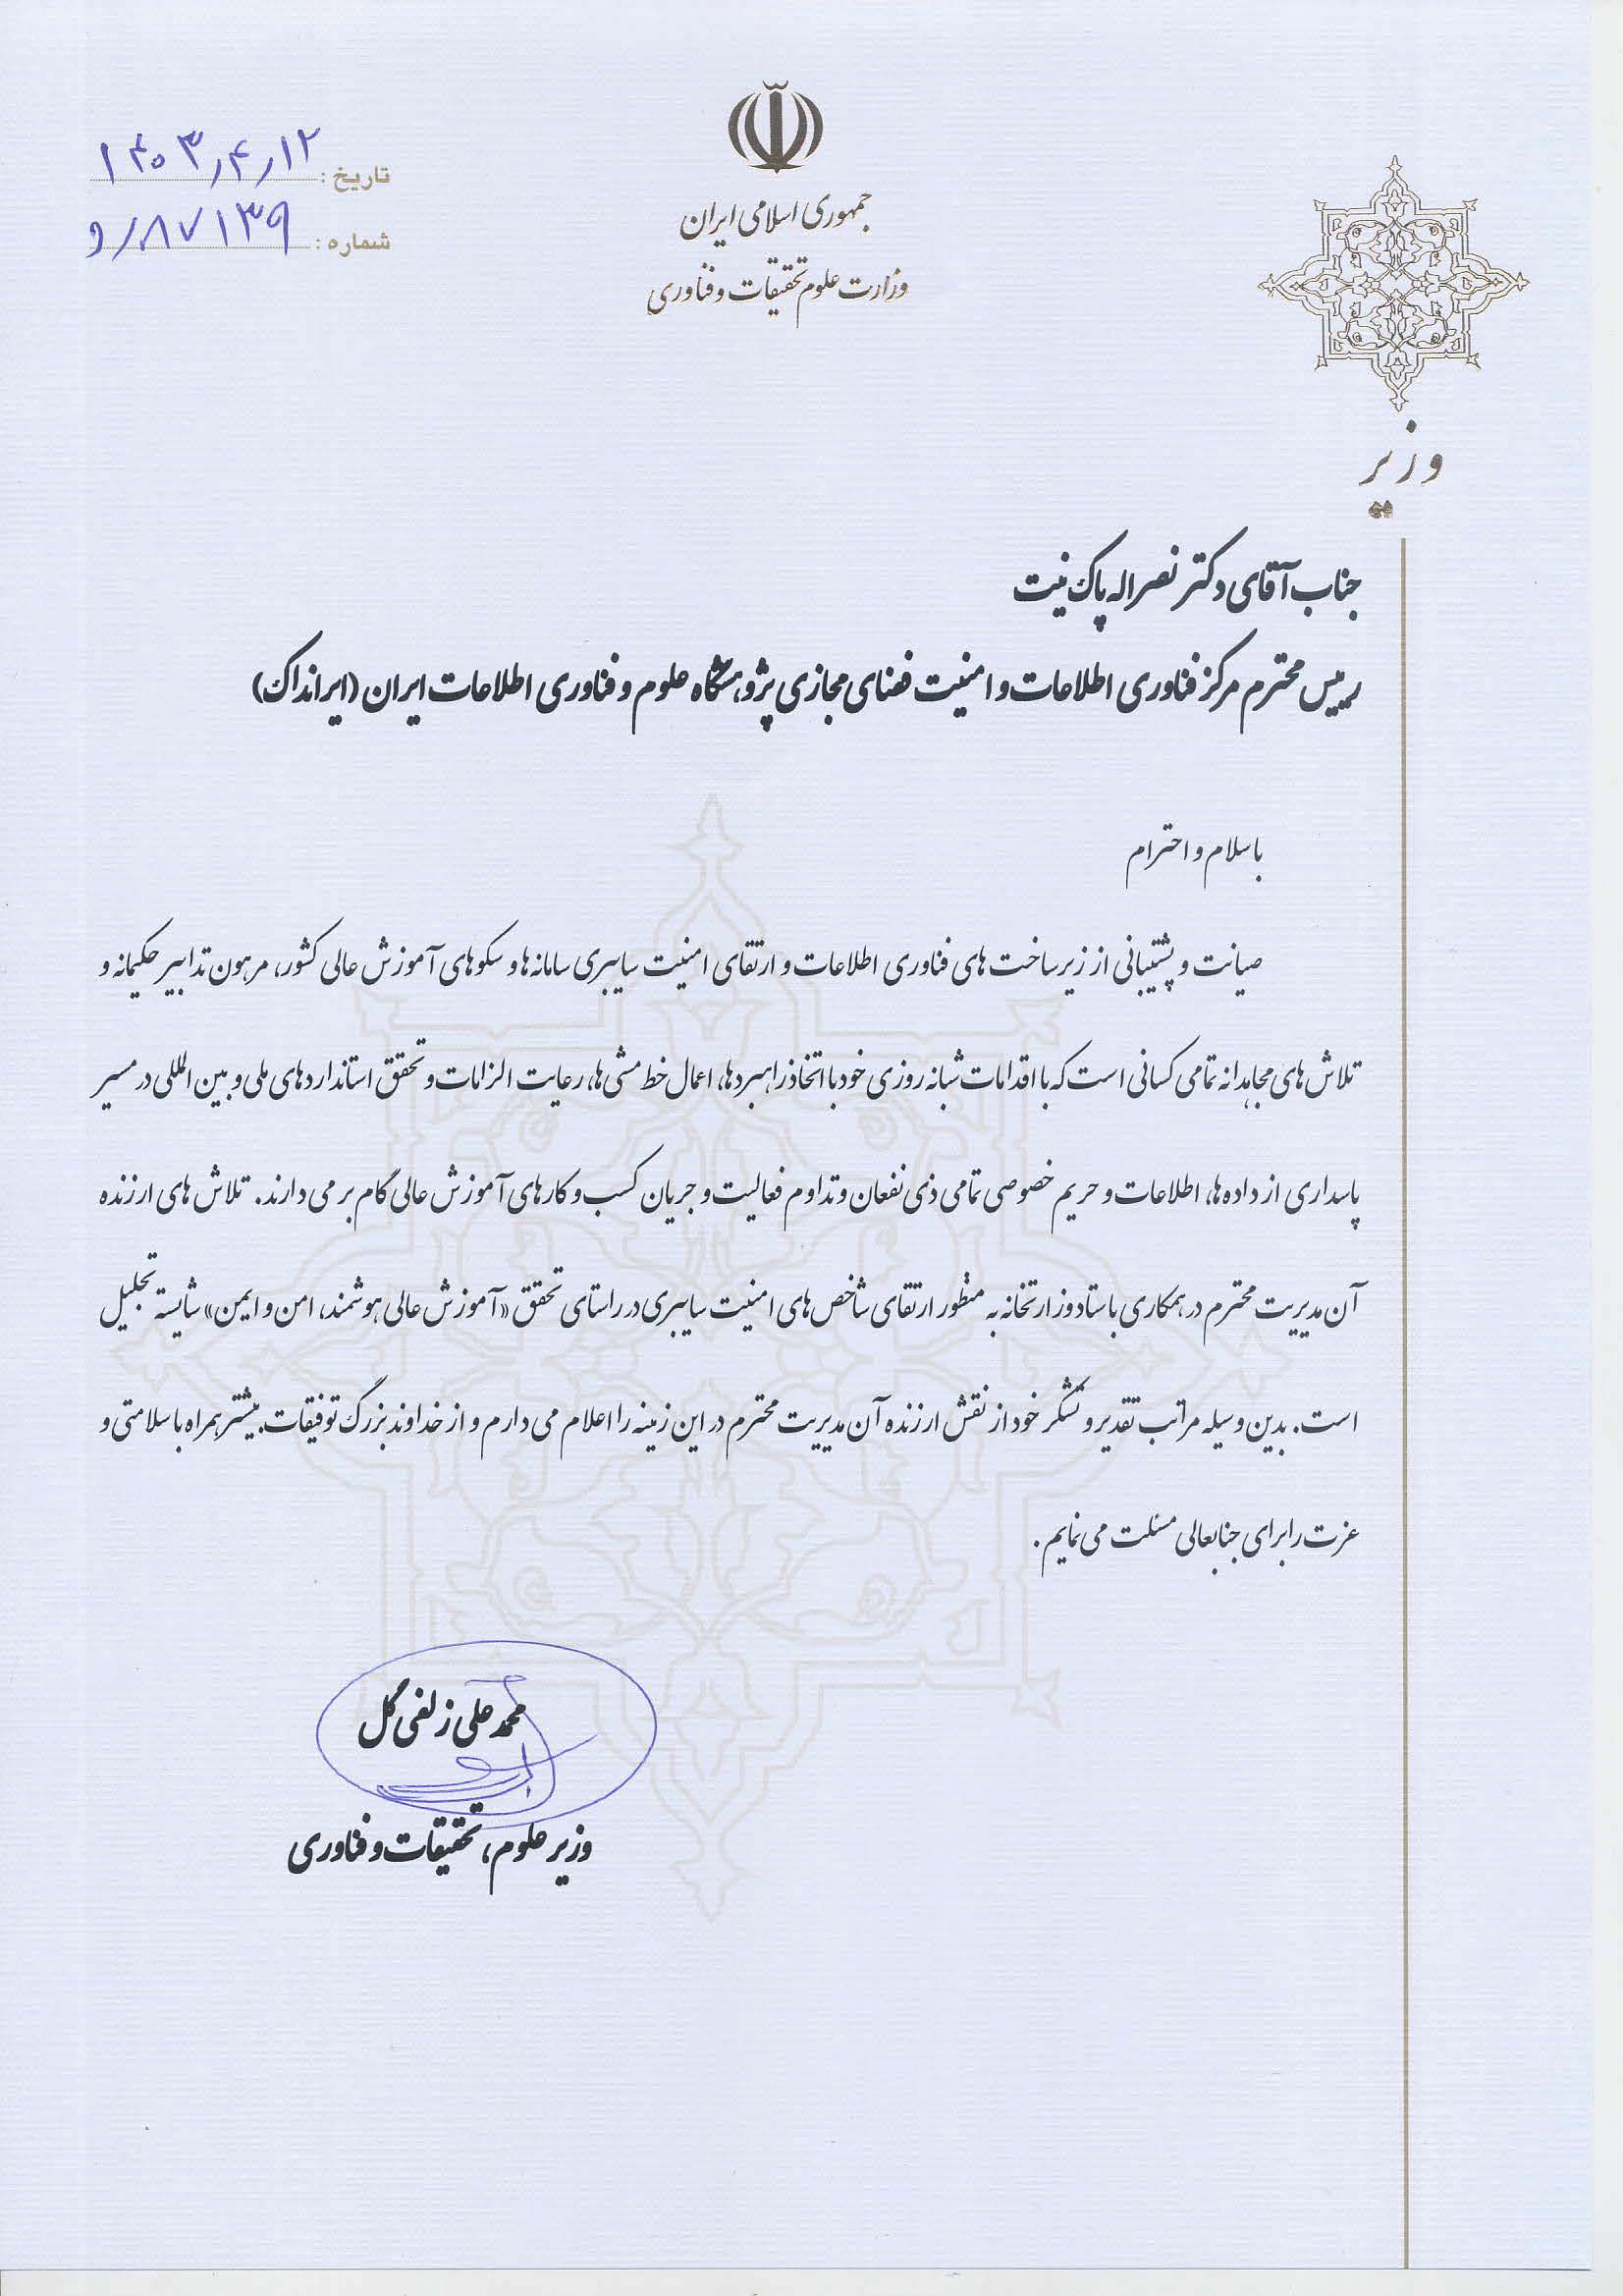 جمهوری اسلامی ایران
وزارت علوم تحقیقات و فناوری
تاریخ : ۱۴۰۳٫۴٫۱۲
شماره : و/۸۷۱۳۹
وزیر
جناب آقای دکتر نصراله پاک نیت
رییس محترم مرکز فناوری اطلاعات و امنیت فضای مجازی پژوهشگاه علوم و فناوری اطلاعات ایران (ایرانداک)
با سلام و احترام
صیانت و پشتیبانی از زیرساخت های فناوری اطلاعات و ارتقای امنیت سایبری سامانه ها و سکوهای آموزش عالی کشور، مرهون تدابیر حکیمانه و
تلاش های مجاهدانه تمامی کسانی است که با اقدامات شبانه روزی خود با اتخاذ راهبردها، اعمال خط مشی ها، رعایت الزامات و تحقق استانداردهای ملی و بین المللی در مسیر
پاسداری از داده ها، اطلاعات و حریم خصوصی تمامی ذی نفعان و تداوم فعالیت و جریان کسب و کارهای آموزش عالی گام بر می دارند. تلاش های ارزنده
آن مدیریت محترم در همکاری با ستاد وزارتخانه به منظور ارتقای شاخص های امنیت سایبری در راستای تحقق «آموزش عالی هوشمند، امن و ایمن» شایسته تجلیل
است. بدین وسیله مراتب تقدیر و تشکر خود از نقش ارزنده آن مدیریت محترم در این زمینه را اعلام می دارم و از خداوند بزرگ توفیقات بیشتر همراه با سلامتی و
عزت را برای جنابعالی مسئلت می نمایم.
محمد علی زلفی گل
وزیر علوم، تحقیقات و فناوری